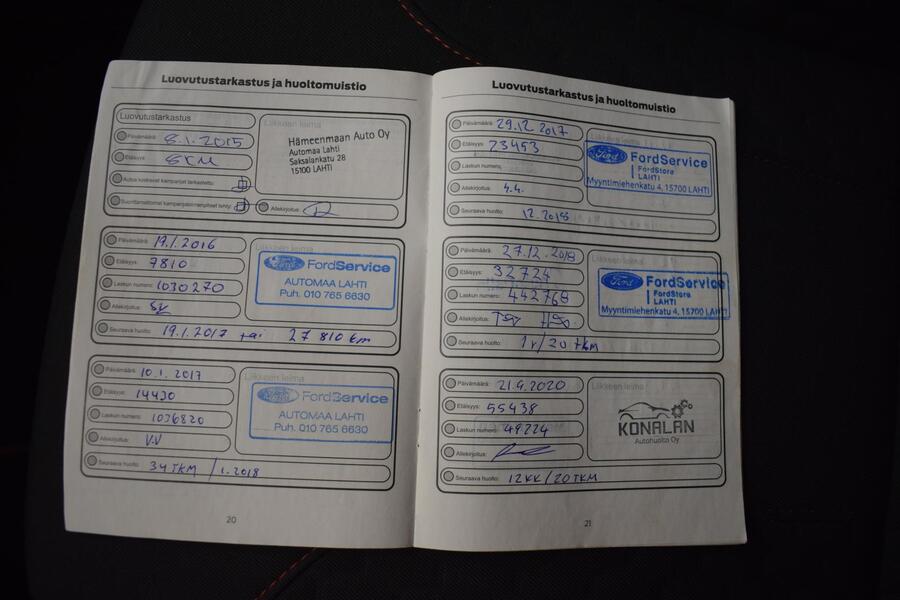 Luovutustarkastus ja huoltomuistio
Luovutustarkastus
Liikkeen leima
Päivämäärä: 8.1.2015
Etäisyys: 8KM
Hämeenmaan Auto Oy
Automaa Lahti
Saksalankatu 28
15100 LAHTI
Autoa koskevat kampanjat tarkastettu:
Suorittamattomat kampanjatoimenpiteet tehty:
Allekirjoitus:
Päivämäärä: 19.1.2016
Etäisyys: 7810
Laskun numero: 1030270
Allekirjoitus:
Seuraava huolto: 19.1.2017 tai 27 810 km
Liikkeen leima
Ford FordService
AUTOMAA LAHTI
Puh. 010 765 6630
Päivämäärä: 10.1.2017
Etäisyys: 14430
Laskun numero: 1036820
Allekirjoitus: V.V
Seuraava huolto: 34TKM / 1.2018
Liikkeen leima
Ford FordService
AUTOMAA LAHTI
Puh. 010 765 6630
20
Luovutustarkastus ja huoltomuistio
Päivämäärä: 29.12.2017
Etäisyys: 23453
Laskun numero:
Allekirjoitus:
Seuraava huolto: 12.2018
Liikkeen leima
Ford FordService
FordStore
LAHTI
Myyntimiehenkatu 4, 15700 LAHTI
Päivämäärä: 27.12.2018
Etäisyys: 32724
Laskun numero: 442768
Allekirjoitus:
Seuraava huolto: 1v/20 TKM
Liikkeen leima
Ford FordService
FordStore
LAHTI
Myyntimiehenkatu 4, 15700 LAHTI
Päivämäärä: 21.9.2020
Etäisyys: 55438
Laskun numero: 49224
Allekirjoitus:
Seuraava huolto: 12KK/20TKM
Liikkeen leima
KONALAN
Autohuolto Oy
21